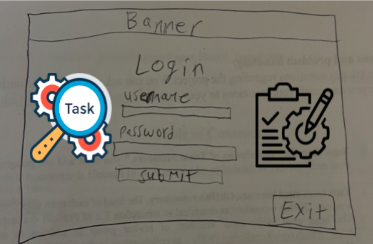 Banner
Login
username
Task
password
submit
Exit